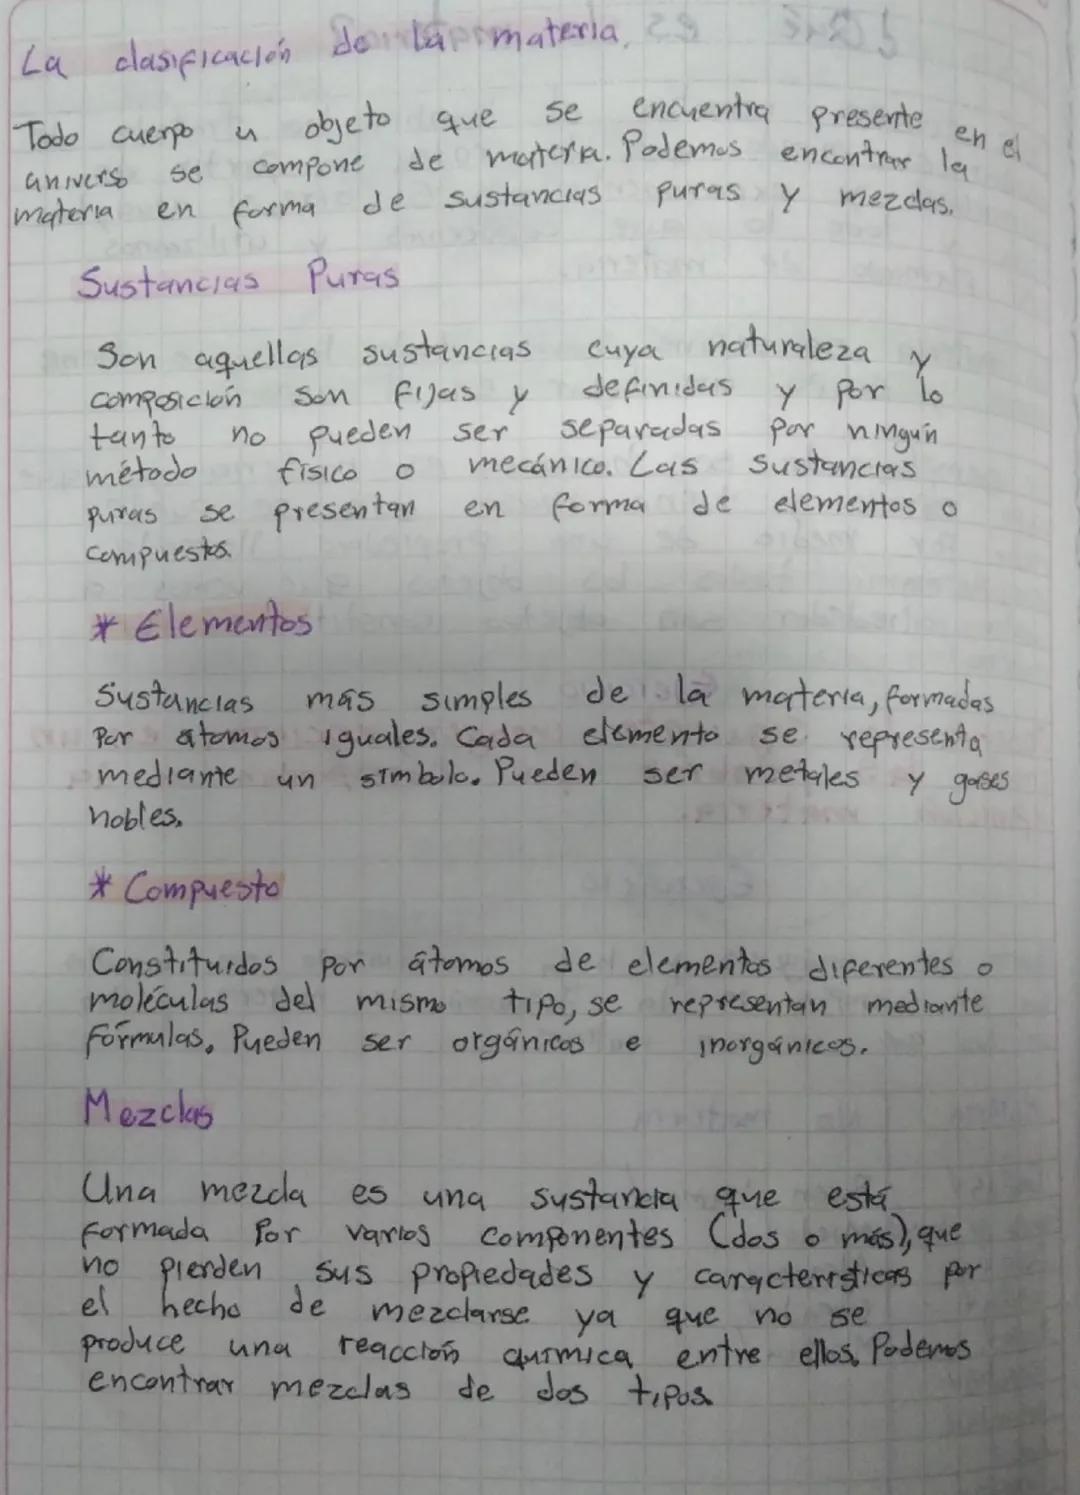 La clasificación de la materia.
Todo cuerpo u objeto que se encuentra presente en el
universo se compone de materia. Podemos encontrar la
materia en forma de sustancias puras y mezclas.
Sustancias Puras
Son aquellas sustancias cuya naturaleza y
composición son fijas y definidas y por lo
tanto no pueden ser separadas por ningún
método físico o mecánico. Las sustancias
puras se presentan en forma de elementos o
compuestos.
* Elementos
Sustancias más simples de la materia, formadas
por átomos iguales. Cada elemento se representa
mediante un símbolo. Pueden ser metales y gases
nobles.
* Compuesto
Constituidos por átomos de elementos diferentes o
moléculas del mismo tipo, se representan mediante
fórmulas. Pueden ser orgánicos e inorgánicos.
Mezclas
Una mezcla es una sustancia que está
formada por varios componentes (dos o más), que
no pierden sus propiedades y características por
el hecho de mezclarse ya que no se
produce una reacción química entre ellos. Podemos
encontrar mezclas de dos tipos.